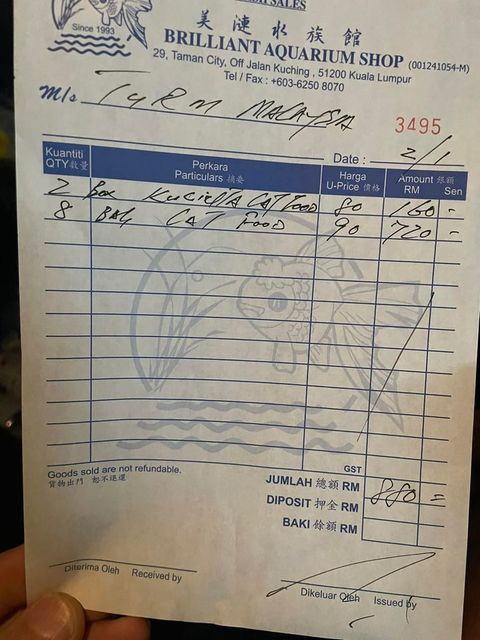 SALES
Since 1993
美漣水族館
BRILLIANT AQUARIUM SHOP (001241054-M)
29, Taman City, Off Jalan Kuching , 51200 Kuala Lumpur
Tel / Fax : +603-6250 8070
M/s TYRM MALAYSIA
3495
Date : 2/1
Kuantiti QTY 數量 Perkara Particulars 摘要 Harga U-Price 價格 Amount 銀額 RM Sen
2 Box KUCINTA CAT FOOD 80 160 -
8 BAG CAT FOOD 90 720 -
GST
Goods sold are not refundable. JUMLAH 總額 RM 880 =
貨物出門 恕不退還
DIPOSIT 押金 RM
BAKI 餘額 RM
Diterima Oleh Received by
Dikeluar Oleh Issued by